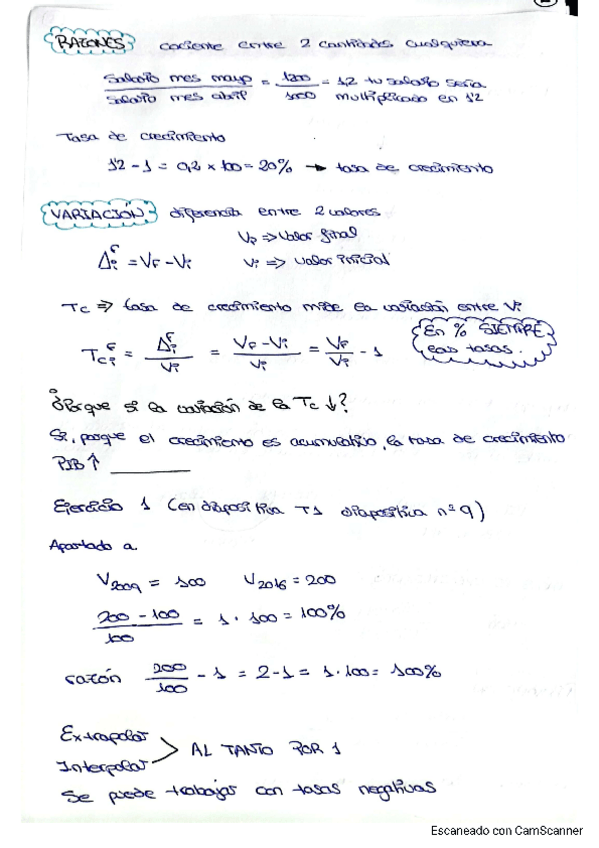 RAZONES cociente entre 2 cantidades cualquiera
Salario mes mayo / Salario mes abril = 1200 / 1000 = 1,2 tu salario sería multiplicado en 1'2
Tasa de crecimiento
1'2 - 1 = 0,2 x 100 = 20% → tasa de crecimiento
VARIACIÓN: diferencia entre 2 valores
VF => Valor final
Δi^F = VF - Vi Vi => Valor inicial
Tc => tasa de crecimiento mide la variación entre Vi
Tc i^F = Δi^F / Vi = VF - Vi / Vi = VF / Vi - 1
En % SIEMPRE
las tasas.
¿Porque si la variación de la Tc ↓?
Si, porque el crecimiento es acumulativo, la tasa de crecimiento
PIB ↑
Ejercicio 1 (en diapositiva T1 diapositiva nº 9)
Apartado a.
V2009 = 100 V2016 = 200
200 - 100 / 100 = 1 · 100 = 100%
razón 200 / 100 - 1 = 2 - 1 = 1 · 100 = 100%
Extrapolar
Interpolar > AL TANTO POR 1
Se puede trabajar con tasas negativas
Escaneado con CamScanner